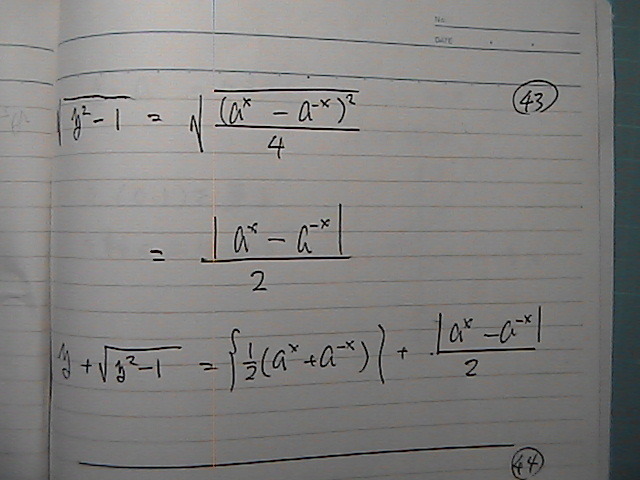 No.
DATE
√(y² - 1) = √((aˣ - a⁻ˣ)² / 4) ㊸
= |aˣ - a⁻ˣ| / 2
y + √(y² - 1) = {½(aˣ + a⁻ˣ)} + |aˣ - a⁻ˣ| / 2
㊹